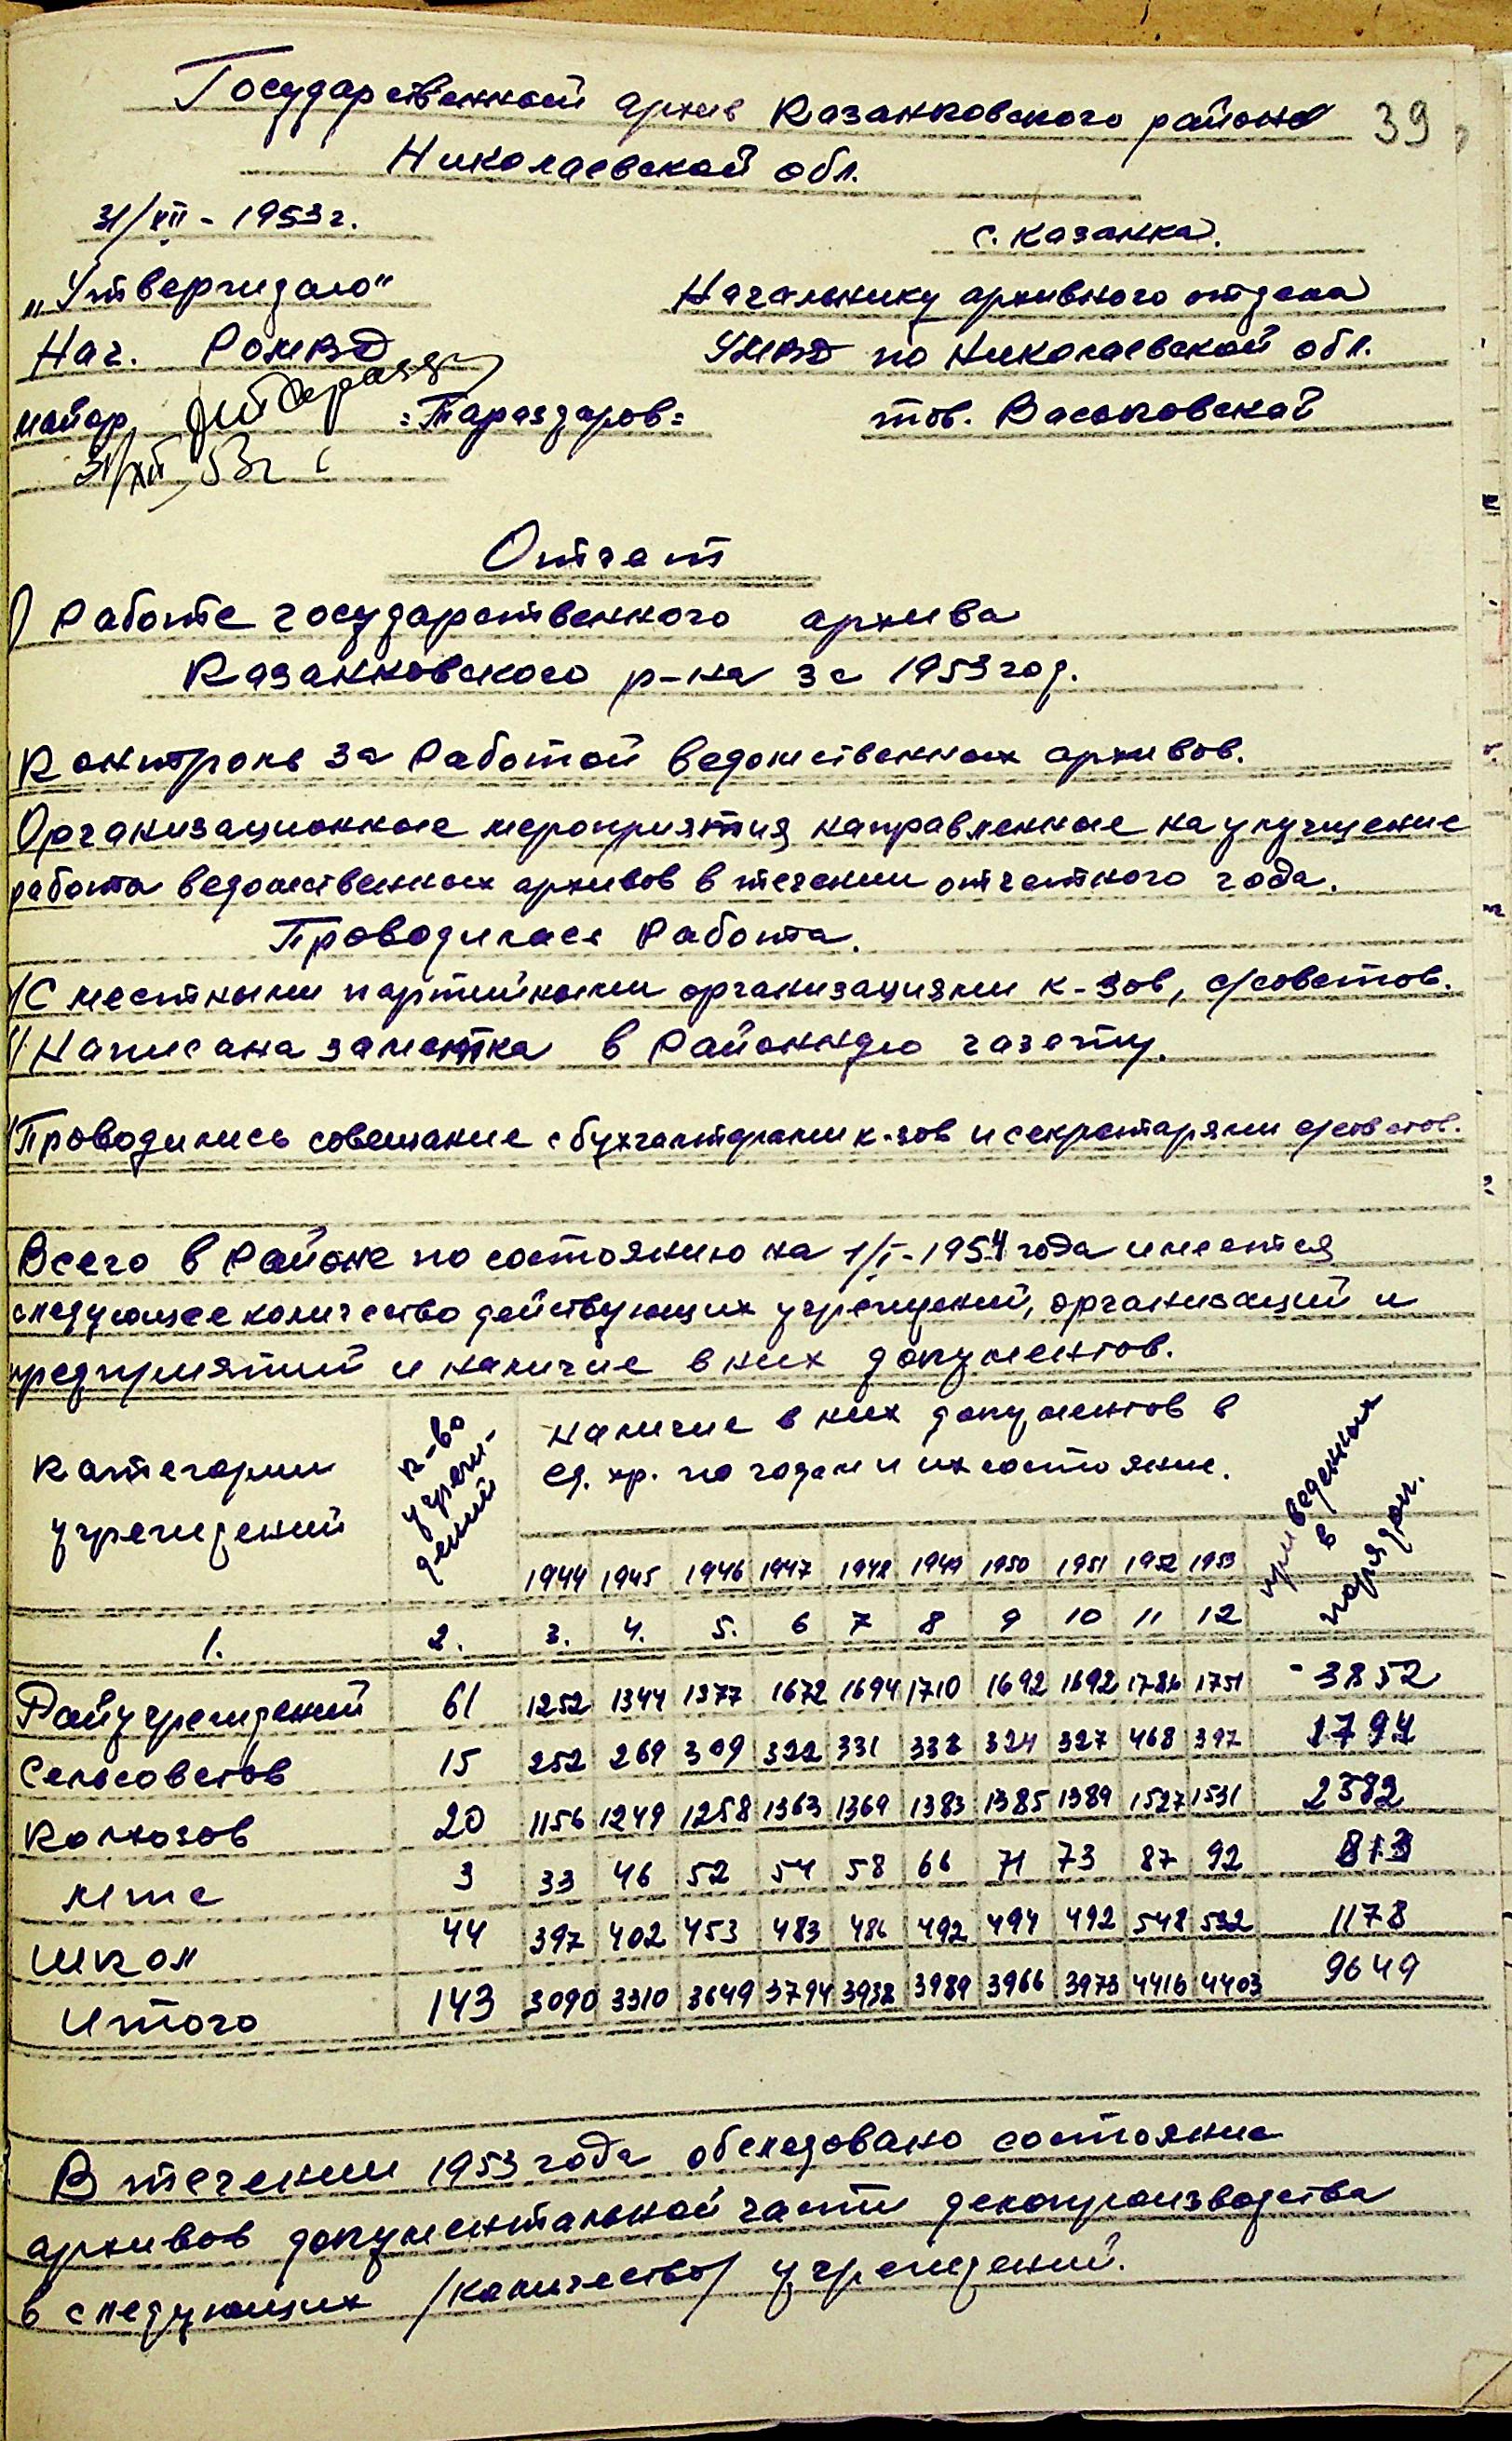 Государственный архив Казанковского района 39
Николаевской обл.
31/XII - 1953 г.
с. Казанка.
„Утверждаю"
Нач. РОМВД
майор =Тараздаров=
31/XII 53г
Начальнику архивного отдела
УМВД по Николаевской обл.
тов. Васьковской
Отчет
О Работе государственного архива
Казанковского р-на за 1953 год.
Контроль за Работой ведомственных архивов.
Организационные мероприятия направленные на улучшение
работы ведомственных архивов в течении отчетного года.
Проводилась Работа.
С местными партийными организациями к-зов, с/советов.
Написана заметка в Районную газету.
Проводились совещание с бухгалтерами к-зов и секретарями с/советов.
Всего в Районе по состоянию на 1/I-1954 года имеется
следующее количество действующих учреждений, организаций и
предприятий и наличие в них документов.
Категории учреждений
К-во учреж-дений
Наличие в них документов в
ед. хр. по годам и их состояние.
приведенных в порядок.
1944 1945 1946 1947 1948 1949 1950 1951 1952 1953
1. 2. 3. 4. 5. 6 7 8 9 10 11 12
Райучреждений 61 1252 1344 1377 1672 1694 1710 1692 1692 1786 1751 - 3852
Сельсоветов 15 252 269 309 322 331 338 324 327 468 397 1794
Колхозов 20 1156 1249 1258 1363 1369 1383 1385 1389 1527 1531 2382
Мтс 3 33 46 52 54 58 66 71 73 87 92 813
Школ 44 397 402 453 483 486 492 494 492 548 532 1178
Итого 143 3090 3310 3649 3794 3938 3989 3966 3973 4416 4403 9649
В течении 1953 года обследовано состояние
архивов документальной части делопроизводства
в следующих /количество/ учреждений.